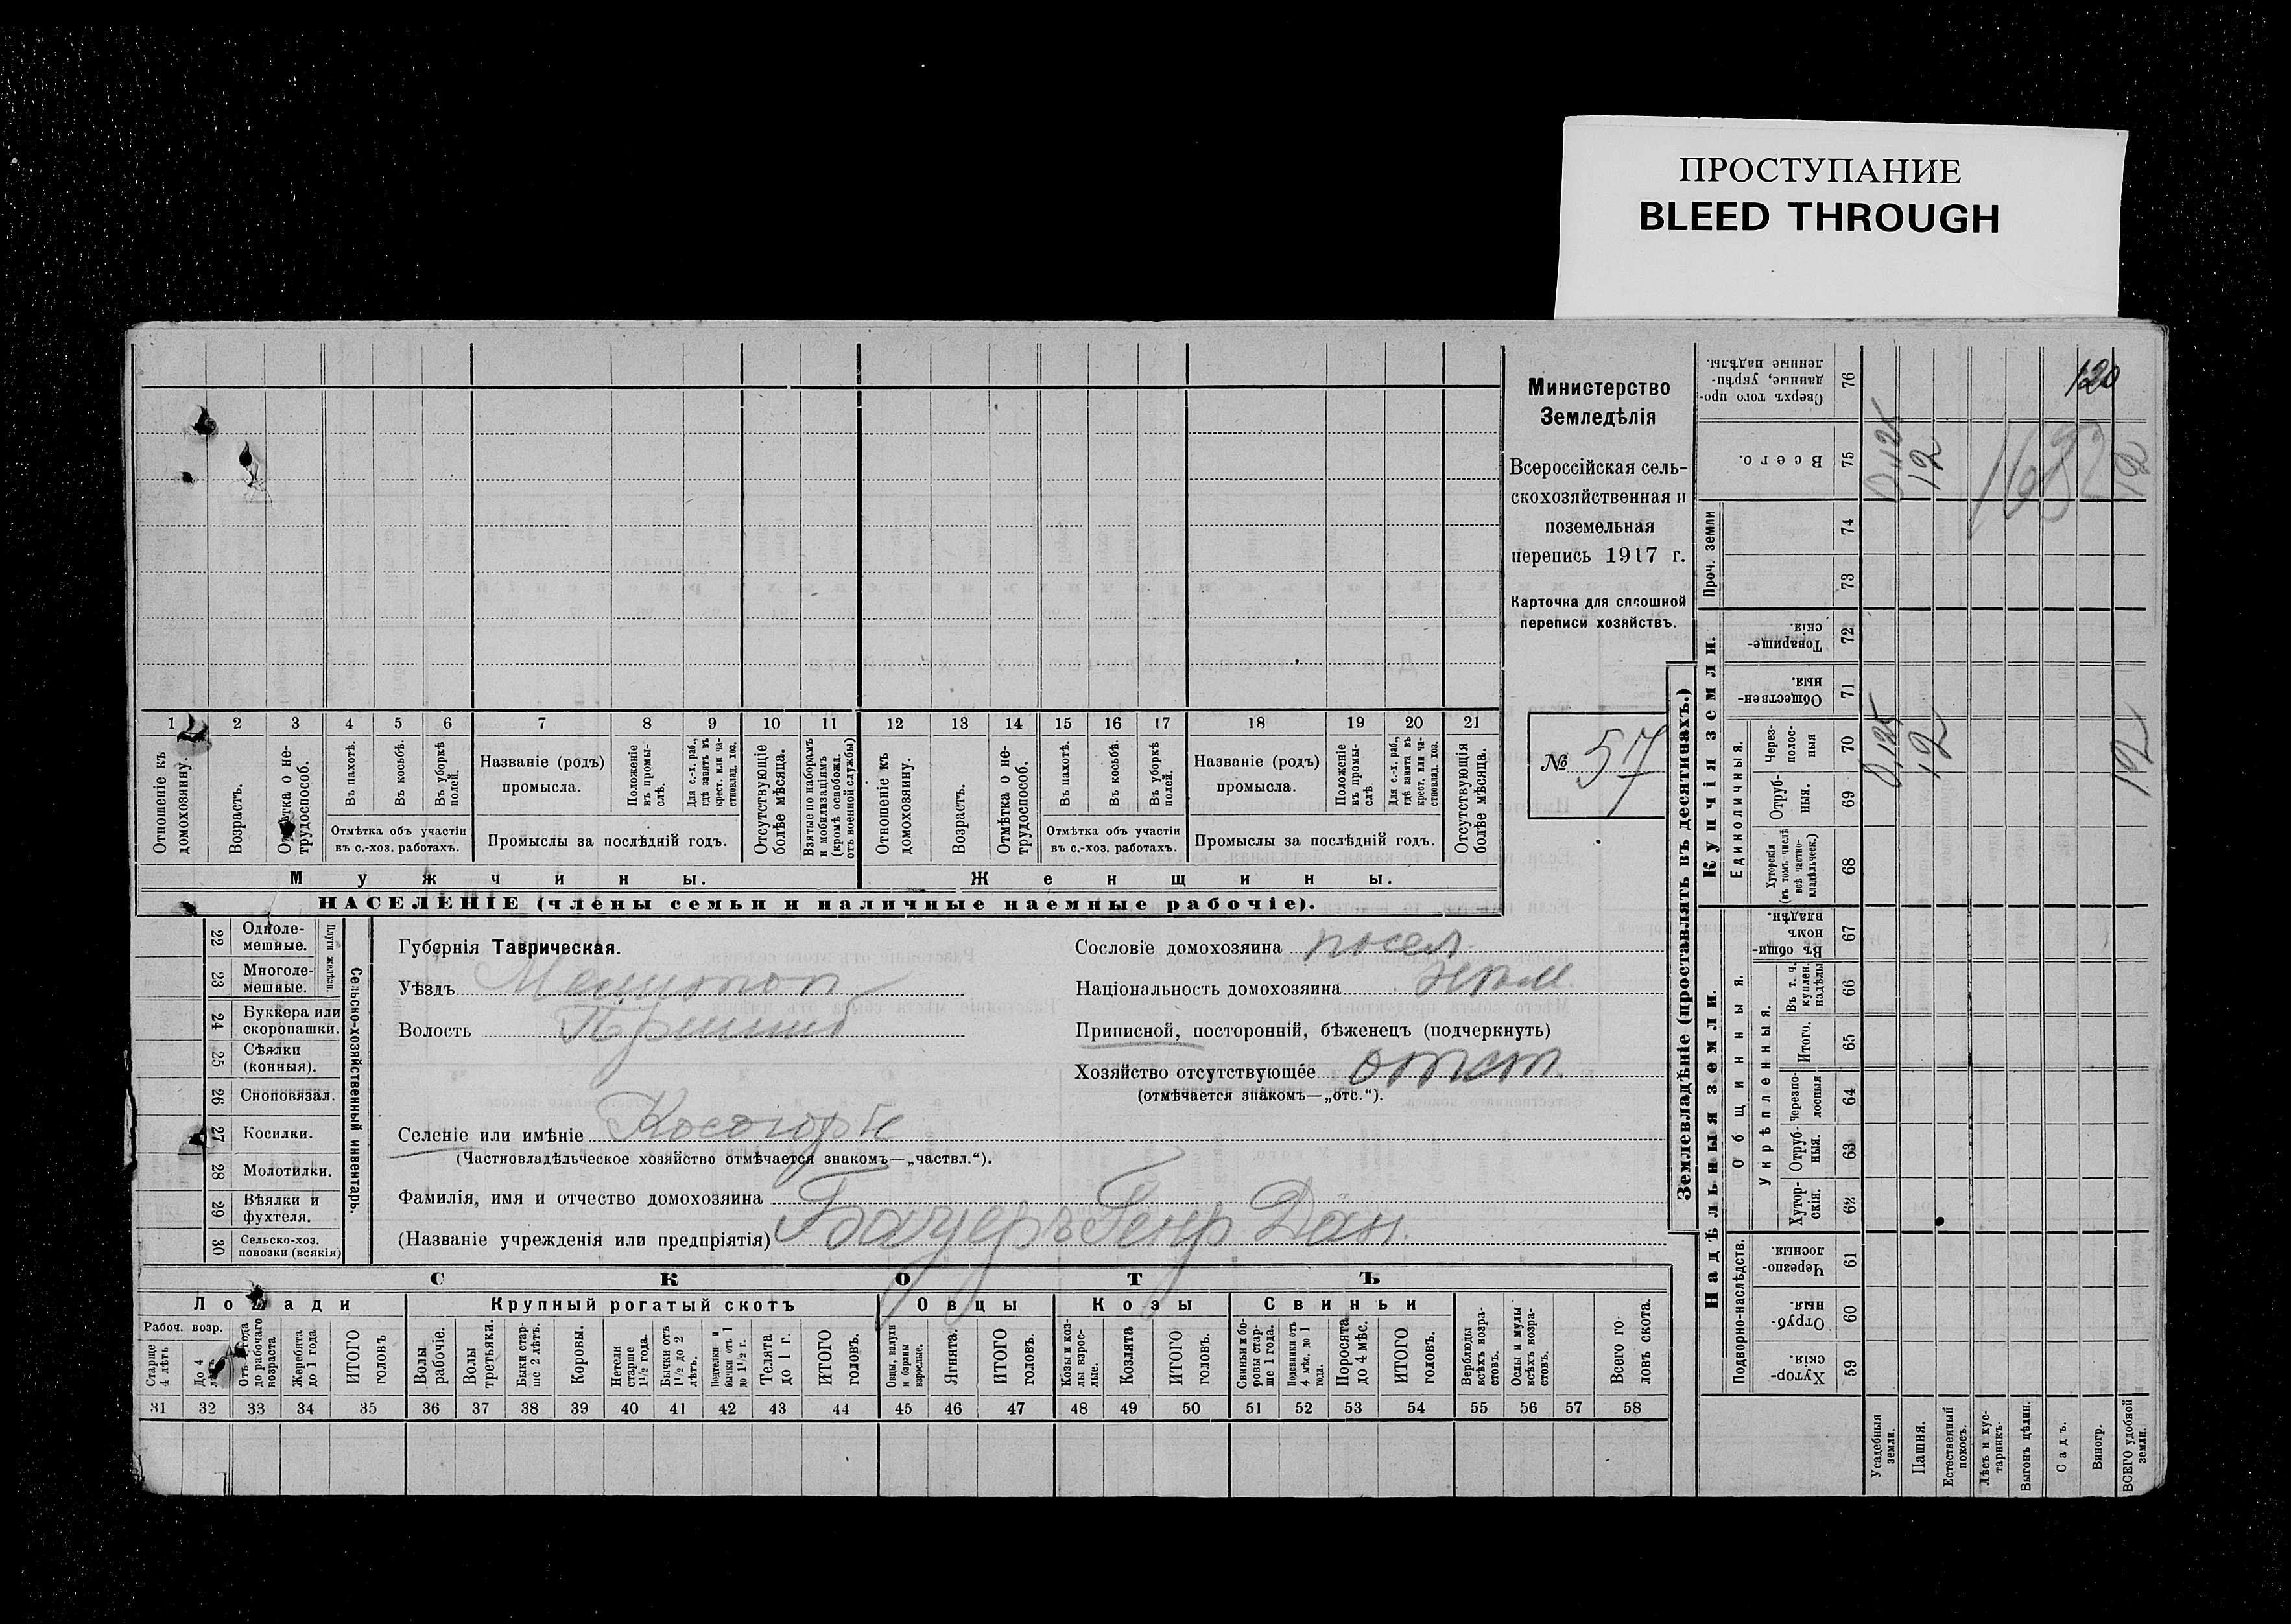 ПРОСТУПАНИЕ
BLEED THROUGH
Министерство
Земледѣлія
Всероссійская сель-
скохозяйственная и
поземельная
перепись 1917 г.
Карточка для сплошной
переписи хозяйствъ.
№ 57
1 2 3 4 5 6 7 8 9 10 11 12 13 14 15 16 17 18 19 20 21
Отношеніе къ домохозяину.
Возрастъ.
Отмѣтка о не-трудоспособ.
Въ пахотѣ.
Въ косьбѣ.
Въ уборкѣ полей.
Отмѣтка объ участіи
въ с.-хоз. работахъ.
Названіе (родъ)
промысла.
Положеніе въ промы-слѣ.
Для с.-х. раб., гдѣ занятъ въ крест. или ча-стновлад. хоз.
Промыслы за послѣдній годъ.
Отсутствующіе болѣе мѣсяца.
Взятые по наборамъ и мобилизаціямъ (кромѣ освобожд. отъ военной службы)
Отношеніе къ домохозяину.
Возрастъ.
Отмѣтка о не-трудоспособ.
Въ пахотѣ.
Въ косьбѣ.
Въ уборкѣ полей.
Отмѣтка объ участіи
въ с.-хоз. работахъ.
Названіе (родъ)
промысла.
Положеніе въ промы-слѣ.
Для с.-х. раб., гдѣ занята въ крест. или ча-стновлад. хоз.
Промыслы за послѣдній годъ.
Отсутствующія болѣе мѣсяца.
Мужчины.
Женщины.
НАСЕЛЕНІЕ (члены семьи и наличные наемные рабочіе).
22 Одноле-мешные.
23 Многоле-мешные.
Плуги желѣзн.
24 Буккера или скоропашки.
25 Сѣялки (конныя).
26 Сноповязал.
27 Косилки.
28 Молотилки.
29 Вѣялки и фухтеля.
30 Сельско-хоз. повозки (всякія)
Сельско-хозяйственный инвентарь.
Губернія Таврическая.
Уѣздъ Мелитоп
Волость Пришиб
Селеніе или имѣніе Косогорье
(Частновладѣльческое хозяйство отмѣчается знакомъ—„частвл.“).
Фамилія, имя и отчество домохозяина
(Названіе учрежденія или предпріятія) Бауеръ Генр Дан.
Сословіе домохозяина посел.
Національность домохозяина нѣм.
Приписной, посторонній, бѣженецъ (подчеркнуть)
Хозяйство отсутствующее отст.
(отмѣчается знакомъ—„отс.“).
СКОТЪ
Лошади
Крупный рогатый скотъ
Овцы
Козы
Свиньи
Рабоч. возр.
Старше 4 лѣтъ
До 4 лѣтъ
Отъ 1 года до рабочаго возраста
Жеребята до 1 года
ИТОГО головъ
Волы рабочіе.
Волы третьяки.
Быки стар-ше 2 лѣтъ.
Коровы.
Нетели старше 1½ года.
Бычки отъ 1½ до 2 лѣтъ.
Подтелки и бычки отъ 1 до 1½ г.
Телята до 1 г.
ИТОГО головъ.
Овцы, валухи и бараны взрослые.
Ягнята.
ИТОГО головъ.
Козы и коз-лы взрос-лые.
Козлята
ИТОГО головъ.
Свиньи и бо-ровы стар-ше 1 года.
Подсвинки отъ 4 мѣс. до 1 года.
Поросята до 4 мѣс.
ИТОГО головъ.
Верблюды всѣхъ возра-стовъ.
Ослы и мулы всѣхъ возра-стовъ.
Всего го-ловъ скота.
31 32 33 34 35 36 37 38 39 40 41 42 43 44 45 46 47 48 49 50 51 52 53 54 55 56 57 58
Землевладѣніе (проставлять въ десятинахъ.)
Надѣльныя земли.
Купчія земли.
Проч. земли
Подворно-наслѣдств.
Общинныя.
Укрѣпленныя.
Единоличныя.
Сверхъ того про-данные, укрѣп-ленные надѣлы. 76
Всего. 75
74
73
Товарище-скія. 72
Обществен-ныя. 71
Через-полос-ныя 70
Отруб-ныя. 69
Хуторскія (въ томъ числѣ всѣ частно-владѣльческ.) 68
Въ общин-номъ владѣн. 67
Въ т. ч. куплен. надѣлы 66
Итого. 65
Черезпо-лосныя 64
Отруб-ныя. 63
Хутор-скія. 62
Черезпо-лосныя. 61
Отруб-ныя. 60
Хутор-скія. 59
Усадебныя земли.
Пашня.
Естественный покосъ.
Лѣсъ и кус-тарникъ.
Выгонъ цѣлин.
Садъ.
Виногр.
ВСЕГО удобной земли.
120
0,125
12
12
0,125
12
12